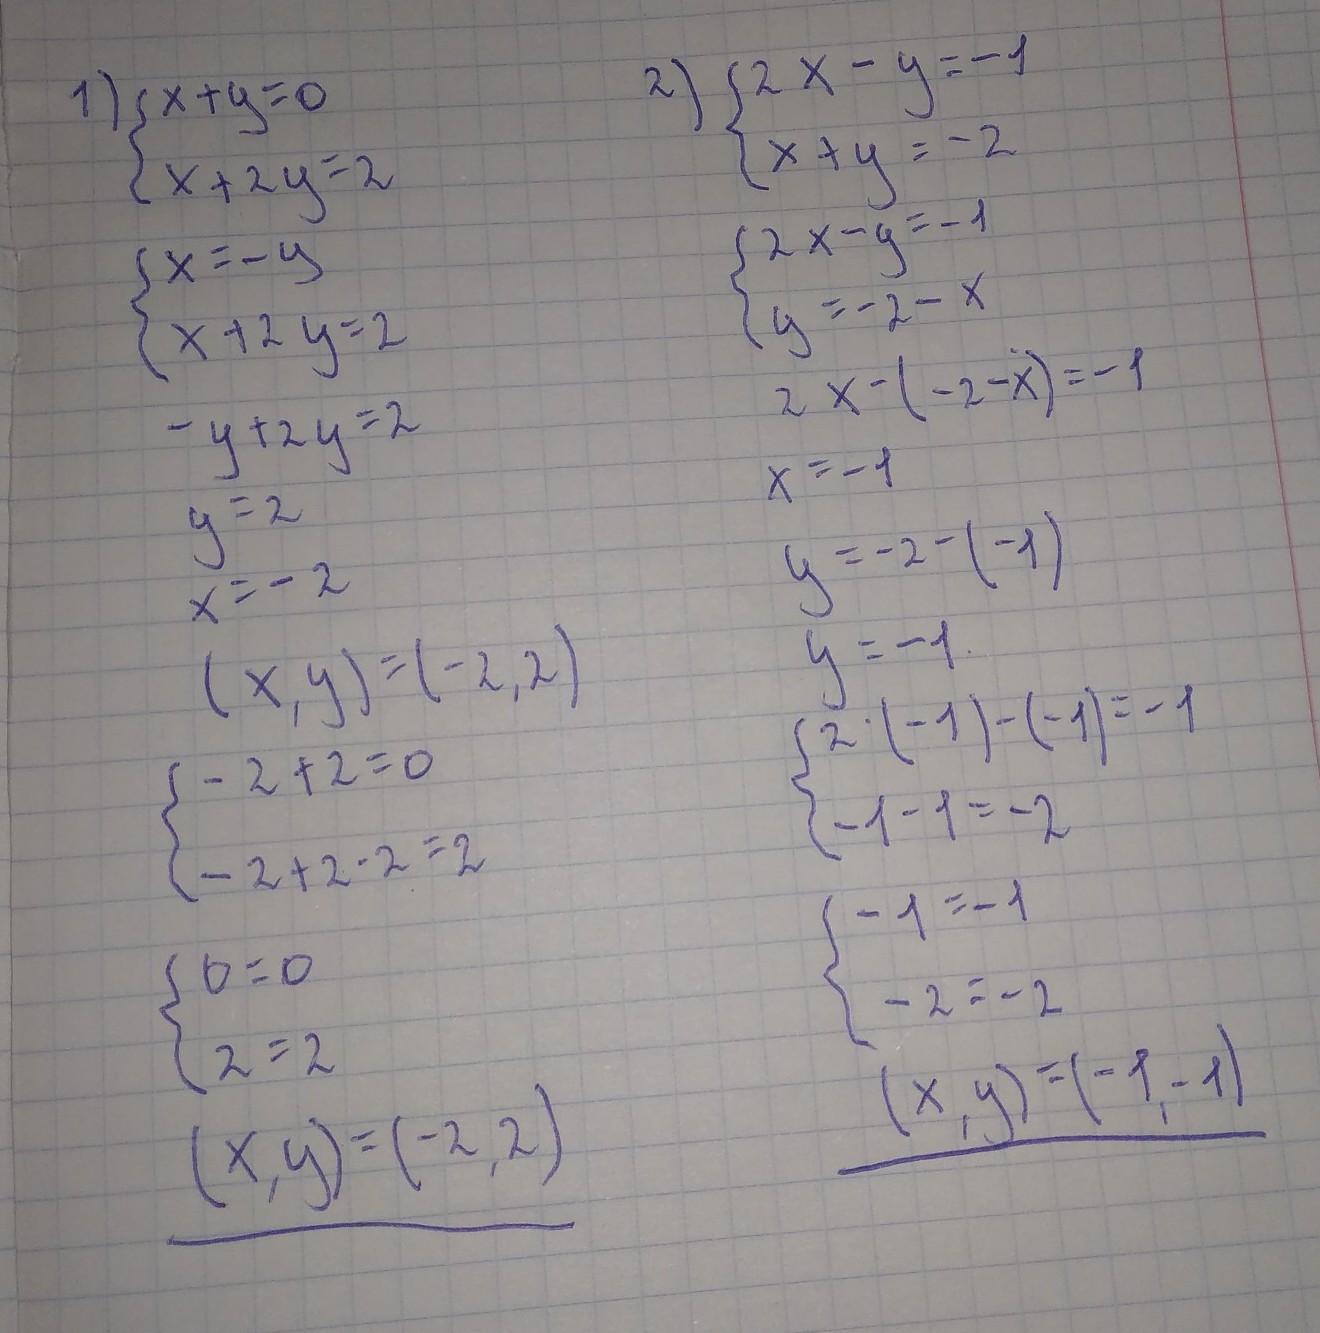 1) { x+y=0
x+2y=2
{ x=-y
x+2y=2
-y+2y=2
y=2
x=-2
(x,y)=(-2,2)
{ -2+2=0
-2+2·2=2
{ 0=0
2=2
(x,y)=(-2,2)
2) { 2x-y=-1
x+y=-2
{ 2x-y=-1
y=-2-x
2x-(-2-x)=-1
x=-1
y=-2-(-1)
y=-1
{ 2·(-1)-(-1)=-1
-1-1=-2
{ -1=-1
-2=-2
(x,y)=(-1,-1)